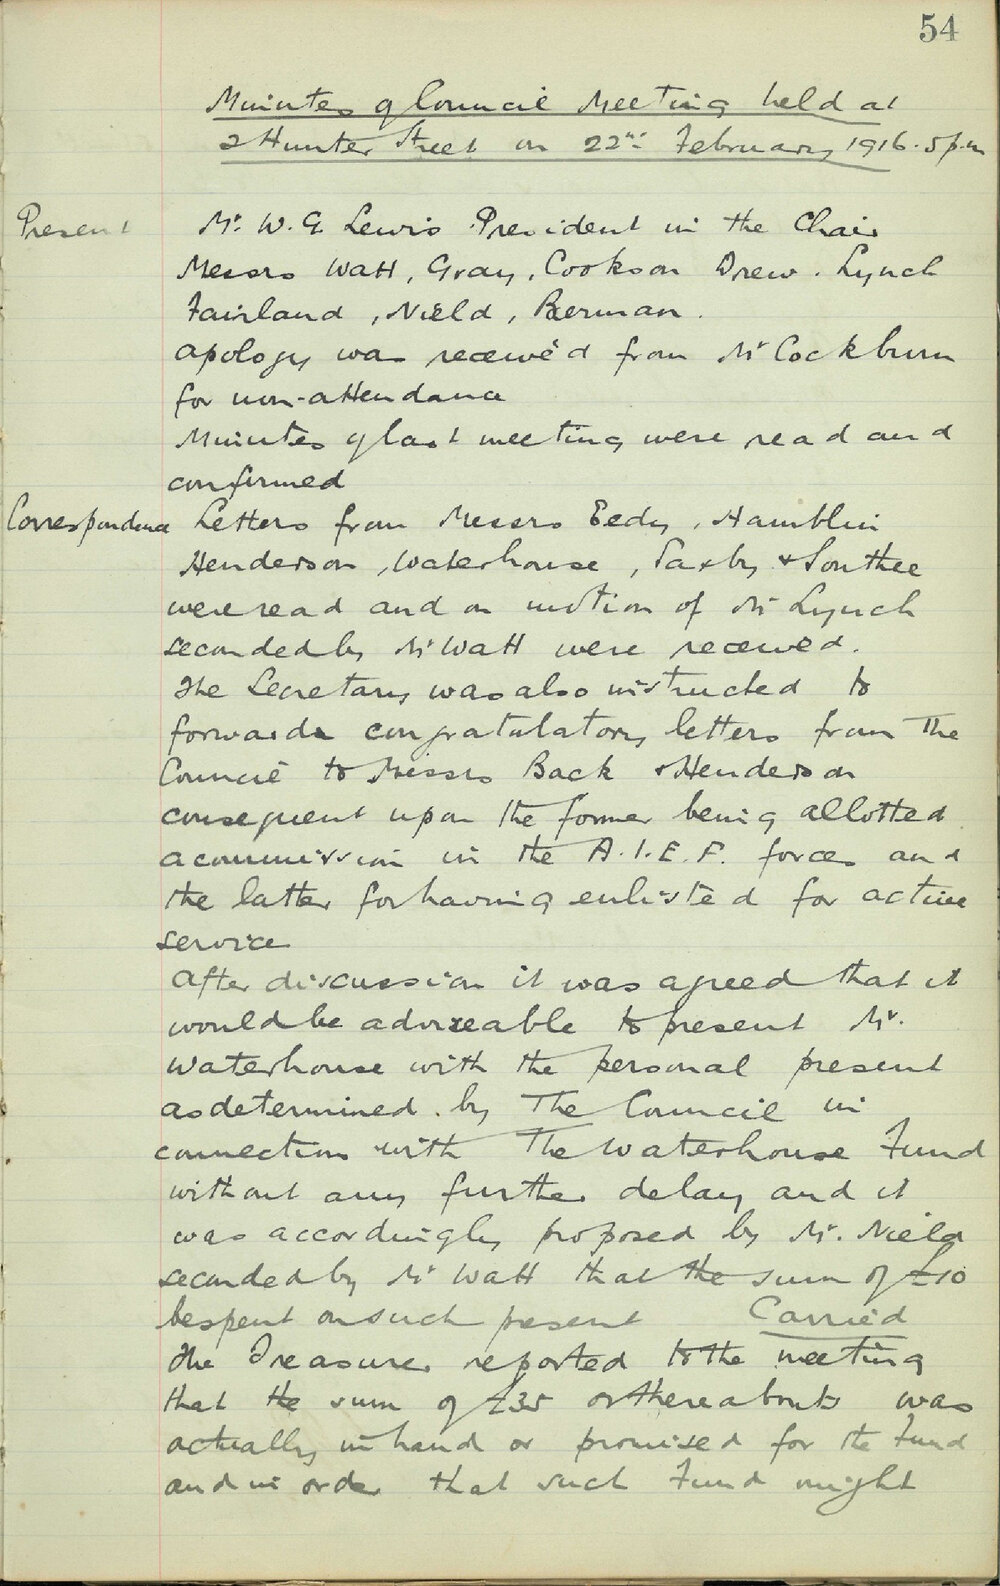 54
Minutes of Council Meeting held at
2 Hunter Street on 22nd February 1916. 5 p.m
Present Mr. W. G. Lewis President in the Chair
Messrs Watt, Gray, Cookson Drew. Lynch
Fairland, Nield, Berman.
apology was received from Mr Cockburn
for non-attendance
Minutes of last meeting were read and
confirmed
Correspondence Letters from Messrs Eedy, Hamblin
Henderson, Waterhouse, Saxby & Southee
were read and on motion of Mr Lynch
seconded by Mr Watt were received.
The Secretary was also instructed to
forward congratulatory letters from The
Council to Messrs Back & Henderson
consequent upon the former being allotted
a commission in the A.I.E.F. forces and
the latter for having enlisted for active
service
After discussion it was agreed that it
would be adviseable to present Mr.
Waterhouse with the personal present
as determined by The Council in
connection with The Waterhouse Fund
without any further delay and it
was accordingly proposed by Mr. Nield
seconded by Mr Watt that the sum of £10
be spent on such present Carried
The Treasurer reported to the meeting
that the sum of £35 or thereabouts was
actually in hand or promised for the Fund
and in order that such Fund might